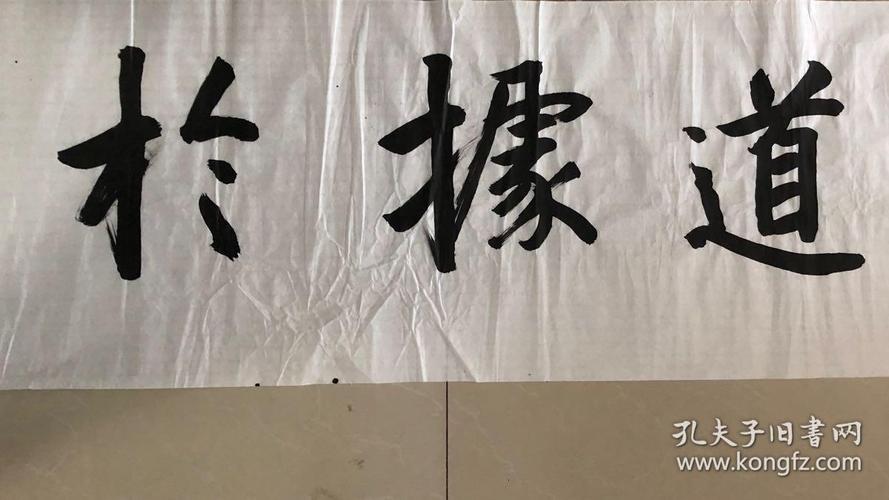 道據於
孔夫子旧書网
www.kongfz.com